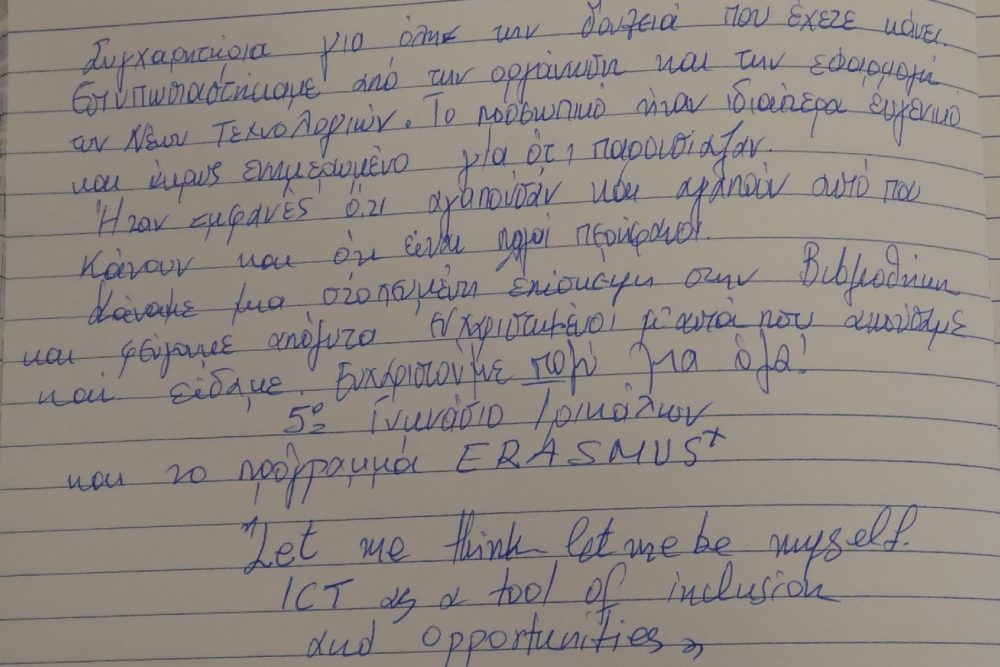 Συγχαρητήρια για όλη την δουλειά που έχετε κάνει.
Εντυπωσιαστήκαμε από την οργάνωση και την εφαρμογή
των Νέων Τεχνολογιών. Το προσωπικό ήταν ιδιαίτερα ευγενικό
και ενημερωμένο για ότι παρουσίαζαν.
Ήταν εμφανές ότι αγαπούσαν και αγαπούν αυτό που
κάνουν και ότι είναι πολύ περήφανοι.
Κάναμε μια στοχευμένη επίσκεψη στην Βιβλιοθήκη
και φεύγαμε απόλυτα ευχαριστημένοι μ' αυτά που ακούσαμε
και είδαμε. Ευχαριστούμε πολύ για όλα!
5º Γυμνάσιο Τρικάλων
και το πρόγραμμα ERASMUS+
"Let me think let me be myself.
ICT as a tool of inclusion
and opportunities"